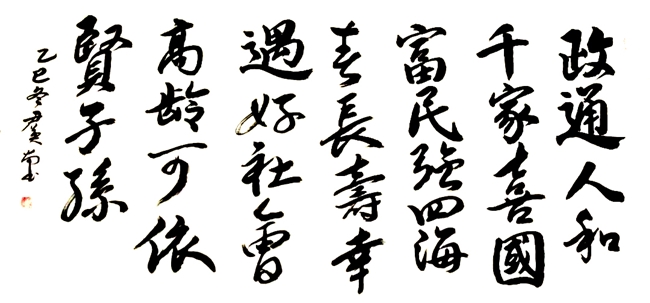 政通人和
千家喜國
富民強四海
春長壽幸
遇好社會
高齡可依
賢子孫
乙巳冬